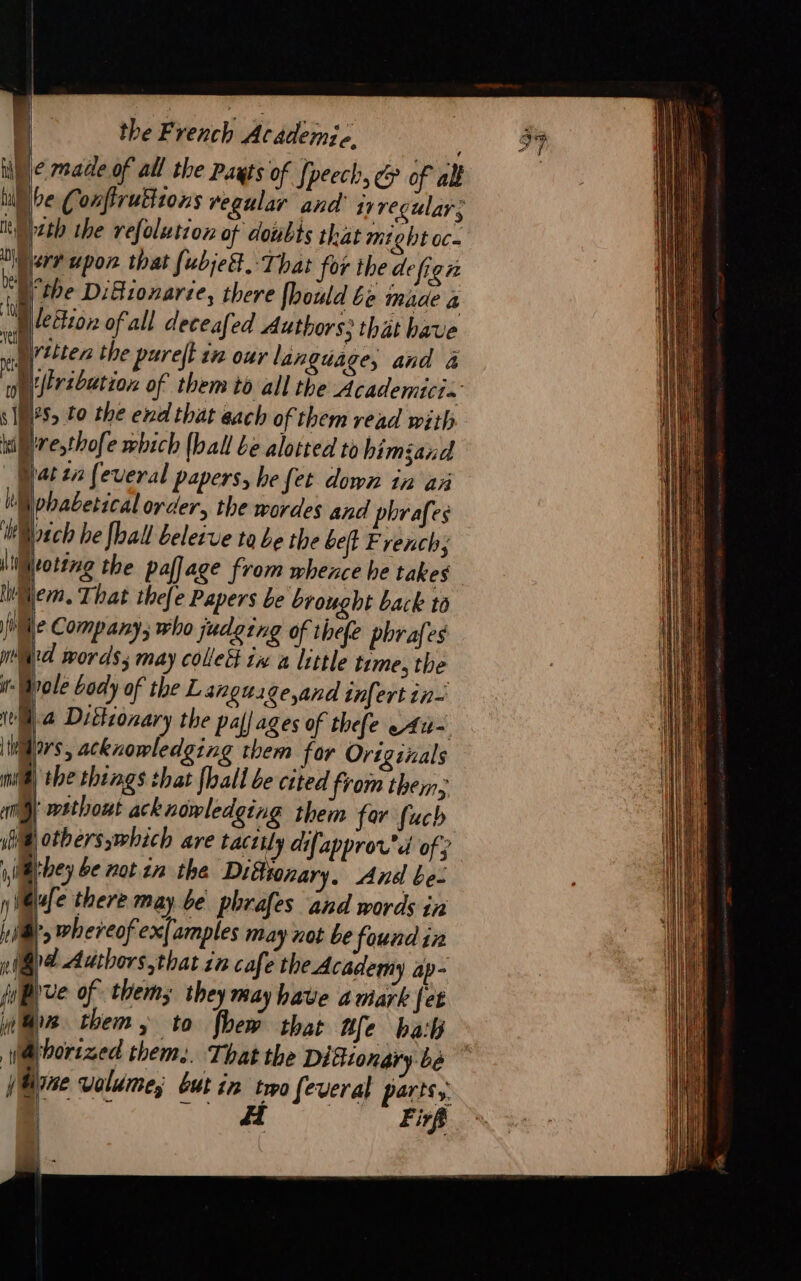 the French Academie. 37
made of all the Paꝛts of ſpeech, & of all
be Conſtructions regular and irregular;
with the reſolution of doubts that might oc-
upon that ſubject. That for the deſign
the Dictionarie, there ſhould be made a
of all deceaſed Authors; that have
written the pureſt in our language, and a
diſtribution of them to all the Academici-
to the end that each of them read with
thoſe which ſhall be alotted to him; and
that in ſeveral papers, he ſet down in an
alphabetical order, the wordes and phraſes
which he ſhall beleive to be the beſt French;
the paſſage from whence he takes
them. That theſe Papers be brought back to
the Company; who judging of theſe phraſes
and words; may collect in a little time, the
whole body of the Language, and inſert in-
a Dictionary the paſſages of theſe Au-
acknowledging them for Originals
the things that ſhall be cited from them;
without acknowledging them for ſuch
others, which are tacitly diſapprov'd of;
they be not in the Dictionary. And be-
cauſe there may be phraſes and words in
whereof exſamples may not be found in
Authors, that in caſe the Academy ap-
prove of them; they may have a mark ſet
them, to ſhew that uſe hath
them;. That the Dictionary be
volume; but in two ſeveral parts,
H Firſt